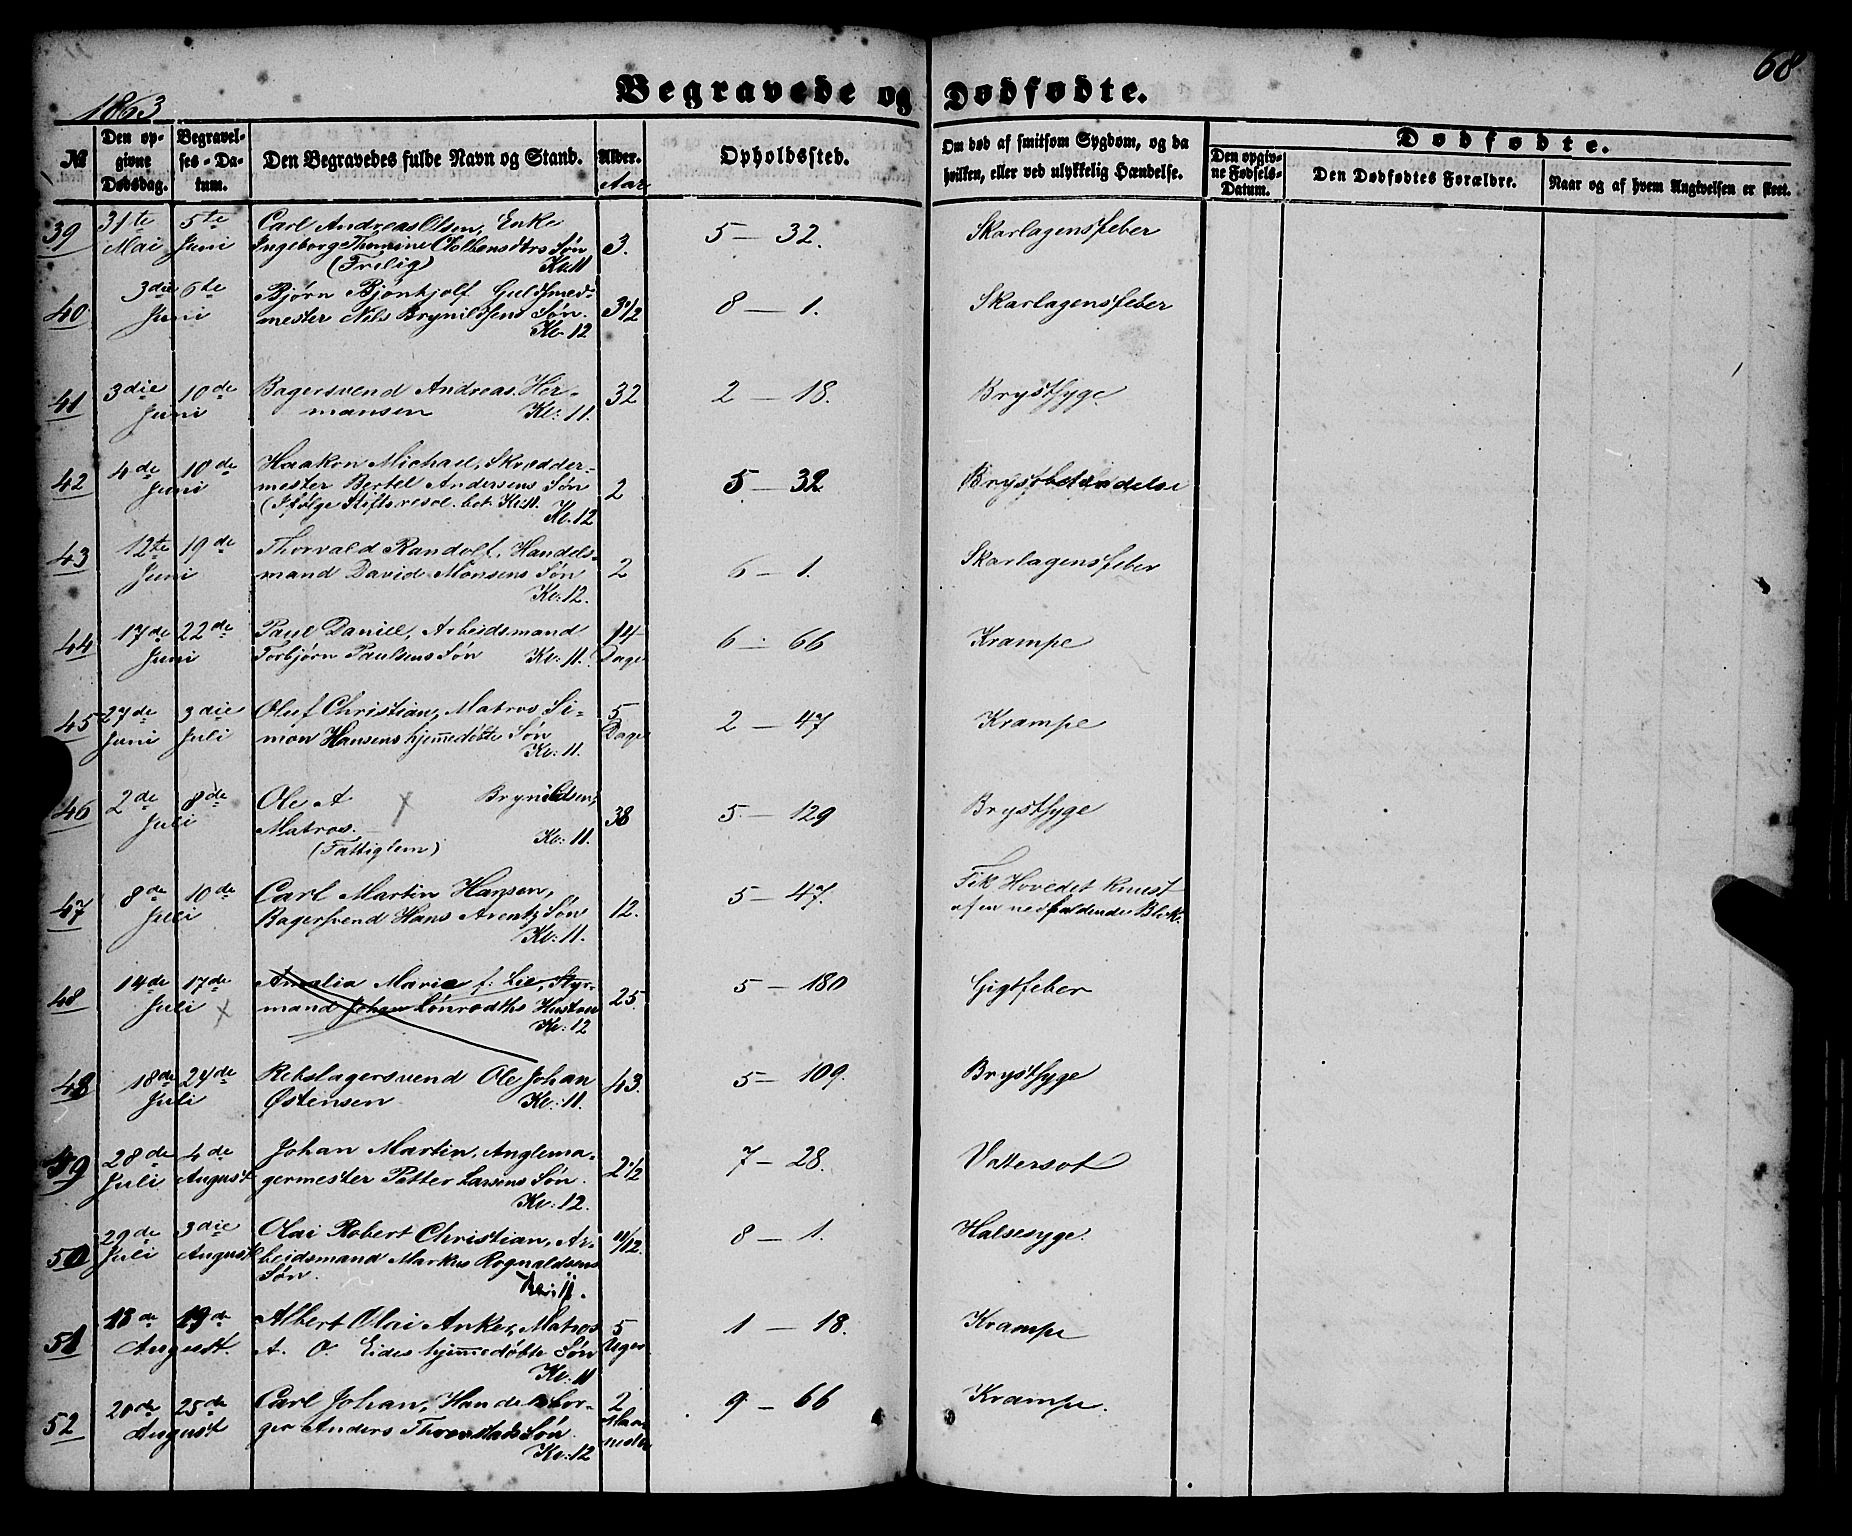 1863
Begravede og Dødfødte.
68
№
Den opgivne Dødsdag.
Begravelses-Datum.
Den Begravedes fulde Navn og Stand.
Alder.
Aar
Opholdssted.
Om død af smitsom Sygdom, og da
hvilken, eller ved ulykkelig Hændelse.
Dødfødte.
Den opgivne Fødsels-Datum.
Den Dødfødtes Forældre.
Naar og af hvem Angivelsen er skeet.
39 31te Mai 5te Juni Carl Andreas Olsen, Enke 3. 5 — 32. Skarlagensfeber
Ingeborg Søn
(Frilig) Kl. 11
40 3die Juni 6te Bjørn Bjønhjolf Guldsmed- 3 1/2 8 — 1. Skarlagensfeber
mester Nils Brynildsens Søn.
Kl. 12
41 3die Juni 10de Bagersvend Andreas Her- 32 2 — 18. Brystsyge
mansen Kl: 11.
42 4de Juni 10de Haakon Michael, Skrædder- 2 5 — 32 Brystbetændelse
mester Bertel Andersens Søn
(Ifølge Stiftsresol. bet. Kl. 11.
Kl. 12
43 12te Juni 19de Thorvald Randolf, Handels- 2 6 — 1. Skarlagensfeber
mand David Monsens Søn
Kl: 12.
44 17de Juni 22de Paul Daniel, Arbeidsmand 14 Dage 6 — 66 Krampe
Torbjørn Paulsens Søn Kl: 11.
45 27de Juni 3die Juli Oluf Christian, Matros Si- 5 Dage 2 — 47 Krampe
mon Hansens hjemmedøbte Søn
Kl: 11.
46 2de Juli 8de Ole A Brynildsen, 38 5 — 129 Brystsyge
Matros. Kl: 11.
(Fattiglem)
47 8de Juli 10de Carl Martin Hansen, 12. 5 — 47. Fik Hovedet knust
Bagersvend Hans Arentz Søn af en nedfaldende Blok.
Kl: 11.
48 14de Juli 17de Amalia Marie f. Lie, Styr- 25 5 — 180 Gigtfeber
mand Johan Lönrodths Hustru
Kl: 12
48 18de Juli 24de Rebslagersvend Ole Johan 43. 5 — 109. Brystsyge
Østensen Kl: 11.
49 28de Juli 4de August Johan Martin, Anglema- 2 1/2 7 — 28. Vattersot
germester Petter Larsens Søn.
Kl: 12.
50 29de Juli 3die August Olai Robert Christian, Ar- 11/12. 8 — 1. Halsesyge.
beidsmand Markus Rognaldsens
Søn. Kl: 11.
51 18de August 19de Albert Olai Anker, Matros 5 Uger 1 — 18. Krampe
A. O. Eides hjemmedøbte Søn
Kl: 11
52 20de August 25de Carl Johan, Handelsbor- 2 Maaneder 9 — 66 Krampe.
ger Anders Søn
Kl: 12